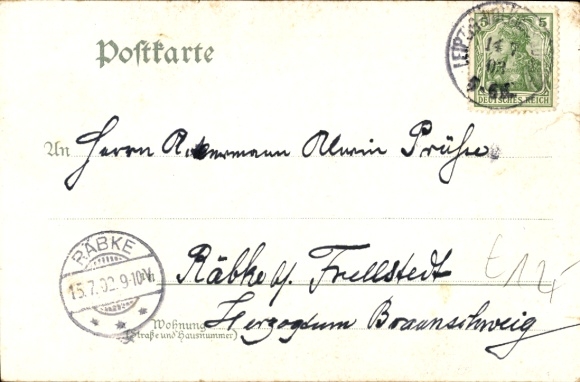 Postkarte
5
DEUTSCHES REICH
An Herrn Ackermann Alwin Prühe
RÄBKE
15.7.02.9-10V.
Räbke b/. Frellstedt
Wohnung
(Straße und Hausnummer)
Herzogtum Braunschweig